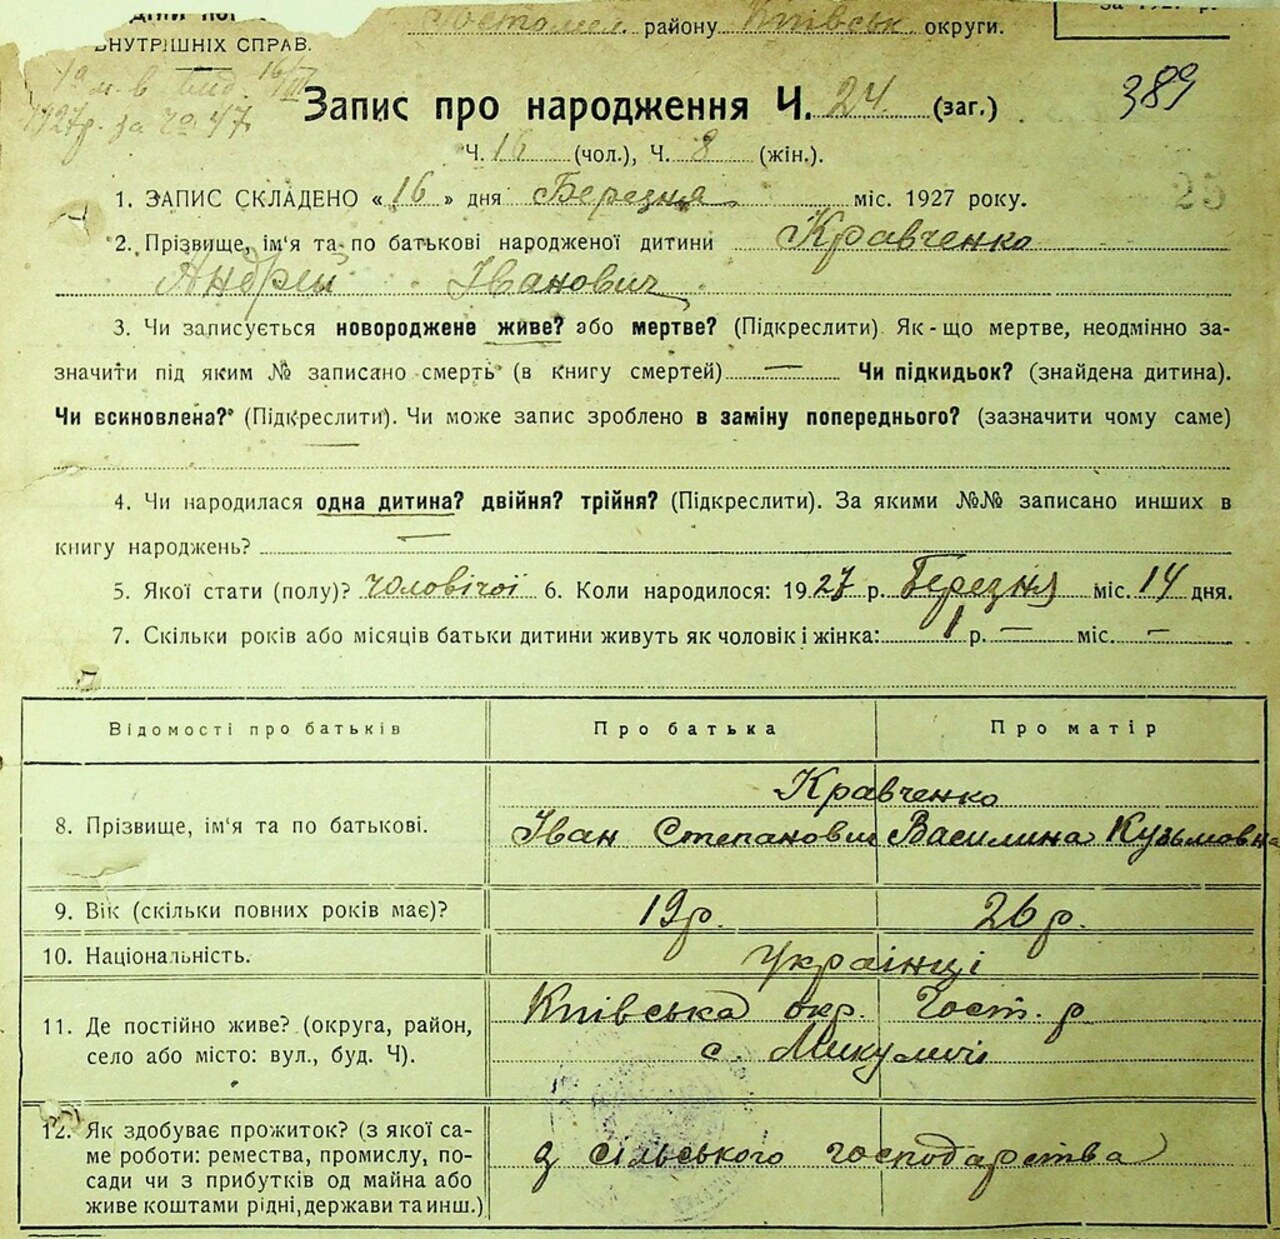 ВНУТРІШНІХ СПРАВ.
Гостомел. району Київськ округи.
за 1927 р.
389
1927р. за № 47
Запис про народження Ч. 24 (заг.)
Ч. 16 (чол.), Ч. 8 (жін.).
25
1. ЗАПИС СКЛАДЕНО «16» дня Березня міс. 1927 року.
2. Прізвище, ім'я та по батькові народженої дитини Кравченко
Андрей Іванович
3. Чи записується новороджене живе? або мертве? (Підкреслити) Як-що мертве, неодмінно за-
значити під яким № записано смерть (в книгу смертей) — Чи підкидьок? (знайдена дитина).
Чи всиновлена? (Підкреслити). Чи може запис зроблено в заміну попереднього? (зазначити чому саме)
4. Чи народилася одна дитина? двійня? трійня? (Підкреслити). За якими №№ записано инших в
книгу народжень? —
5. Якої стати (полу)? чоловічої 6. Коли народилося: 1927 р. Березня міс. 14 дня.
7. Скільки років або місяців батьки дитини живуть як чоловік і жінка: 1 р. — міс. —
Відомості про батьків Про батька Про матір
Кравченко
8. Прізвище, ім'я та по батькові. Іван Степанович Василина Кузьмовна
9. Вік (скільки повних років має)? 19р. 26 р.
10. Національність. Українці
11. Де постійно живе? (округа, район, Київська окр. Гост. р
село або місто: вул., буд. Ч). с. Микуличі
12. Як здобуває прожиток? (з якої са-
ме роботи: ремества, промислу, по- з сільського господарства
сади чи з прибутків од майна або
живе коштами рідні, держави та инш.)